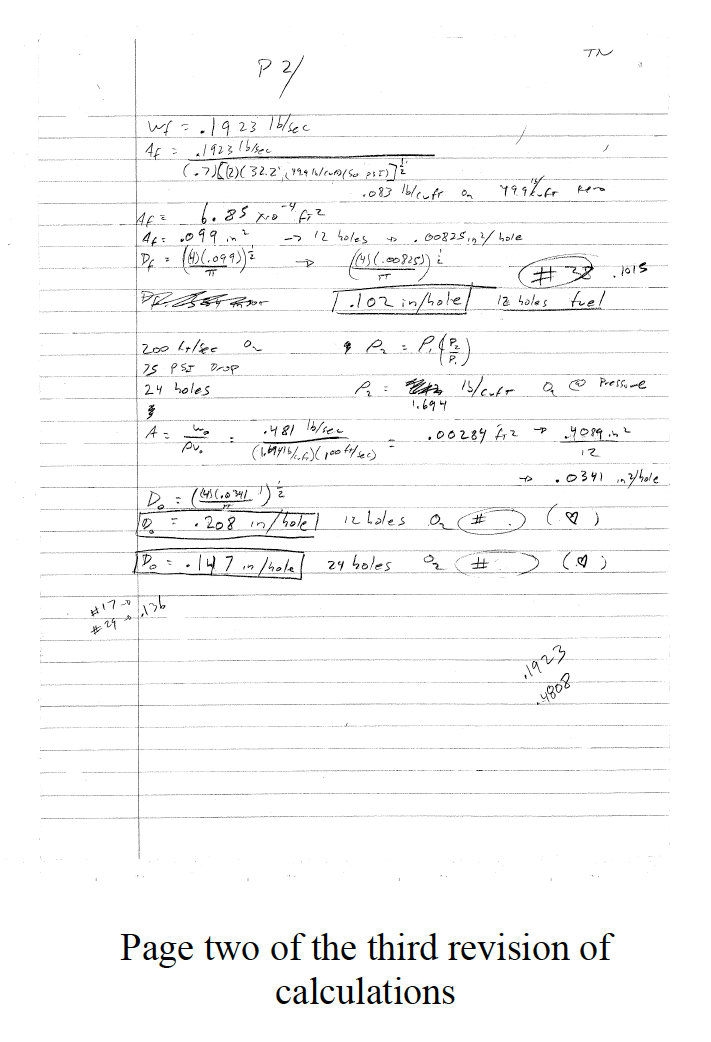 TN
P 2/
wf = .1923 lb/sec
Af = .1923 lb/sec
(.7)[(2)(32.2)(49.9 lb/cuft)(50 PSI)]^½
.083 lb/cuft O₂ 49.9 lb/cuft Kero
Af = 6.85 x10⁻⁴ ft²
Af = .099 in² → 12 holes → .00825 in²/hole
Df = ((4)(.099)/π)^½ → ((4)(.00825)/π)^½ #38 .1015
.102 in/hole 12 holes fuel
200 ft/sec O₂ ρ₂ = ρ₁(P₂/P₁)
75 PSI Drop
24 holes ρ₂ = 1.694 lb/cuft O₂ @ Pressure
A = wo/ρVo = .481 lb/sec/(1.694 lb/cuft)(100 ft/sec) = .00284 ft² → .4089 in²/12
→ .0341 in²/hole
Do = ((4)(.0341)/π)^½
Do = .208 in/hole 12 holes O₂ # (♡)
Do = .147 in/hole 24 holes O₂ # (♡)
#17 →
#29 → .136
.1923
.4808
Page two of the third revision of
calculations